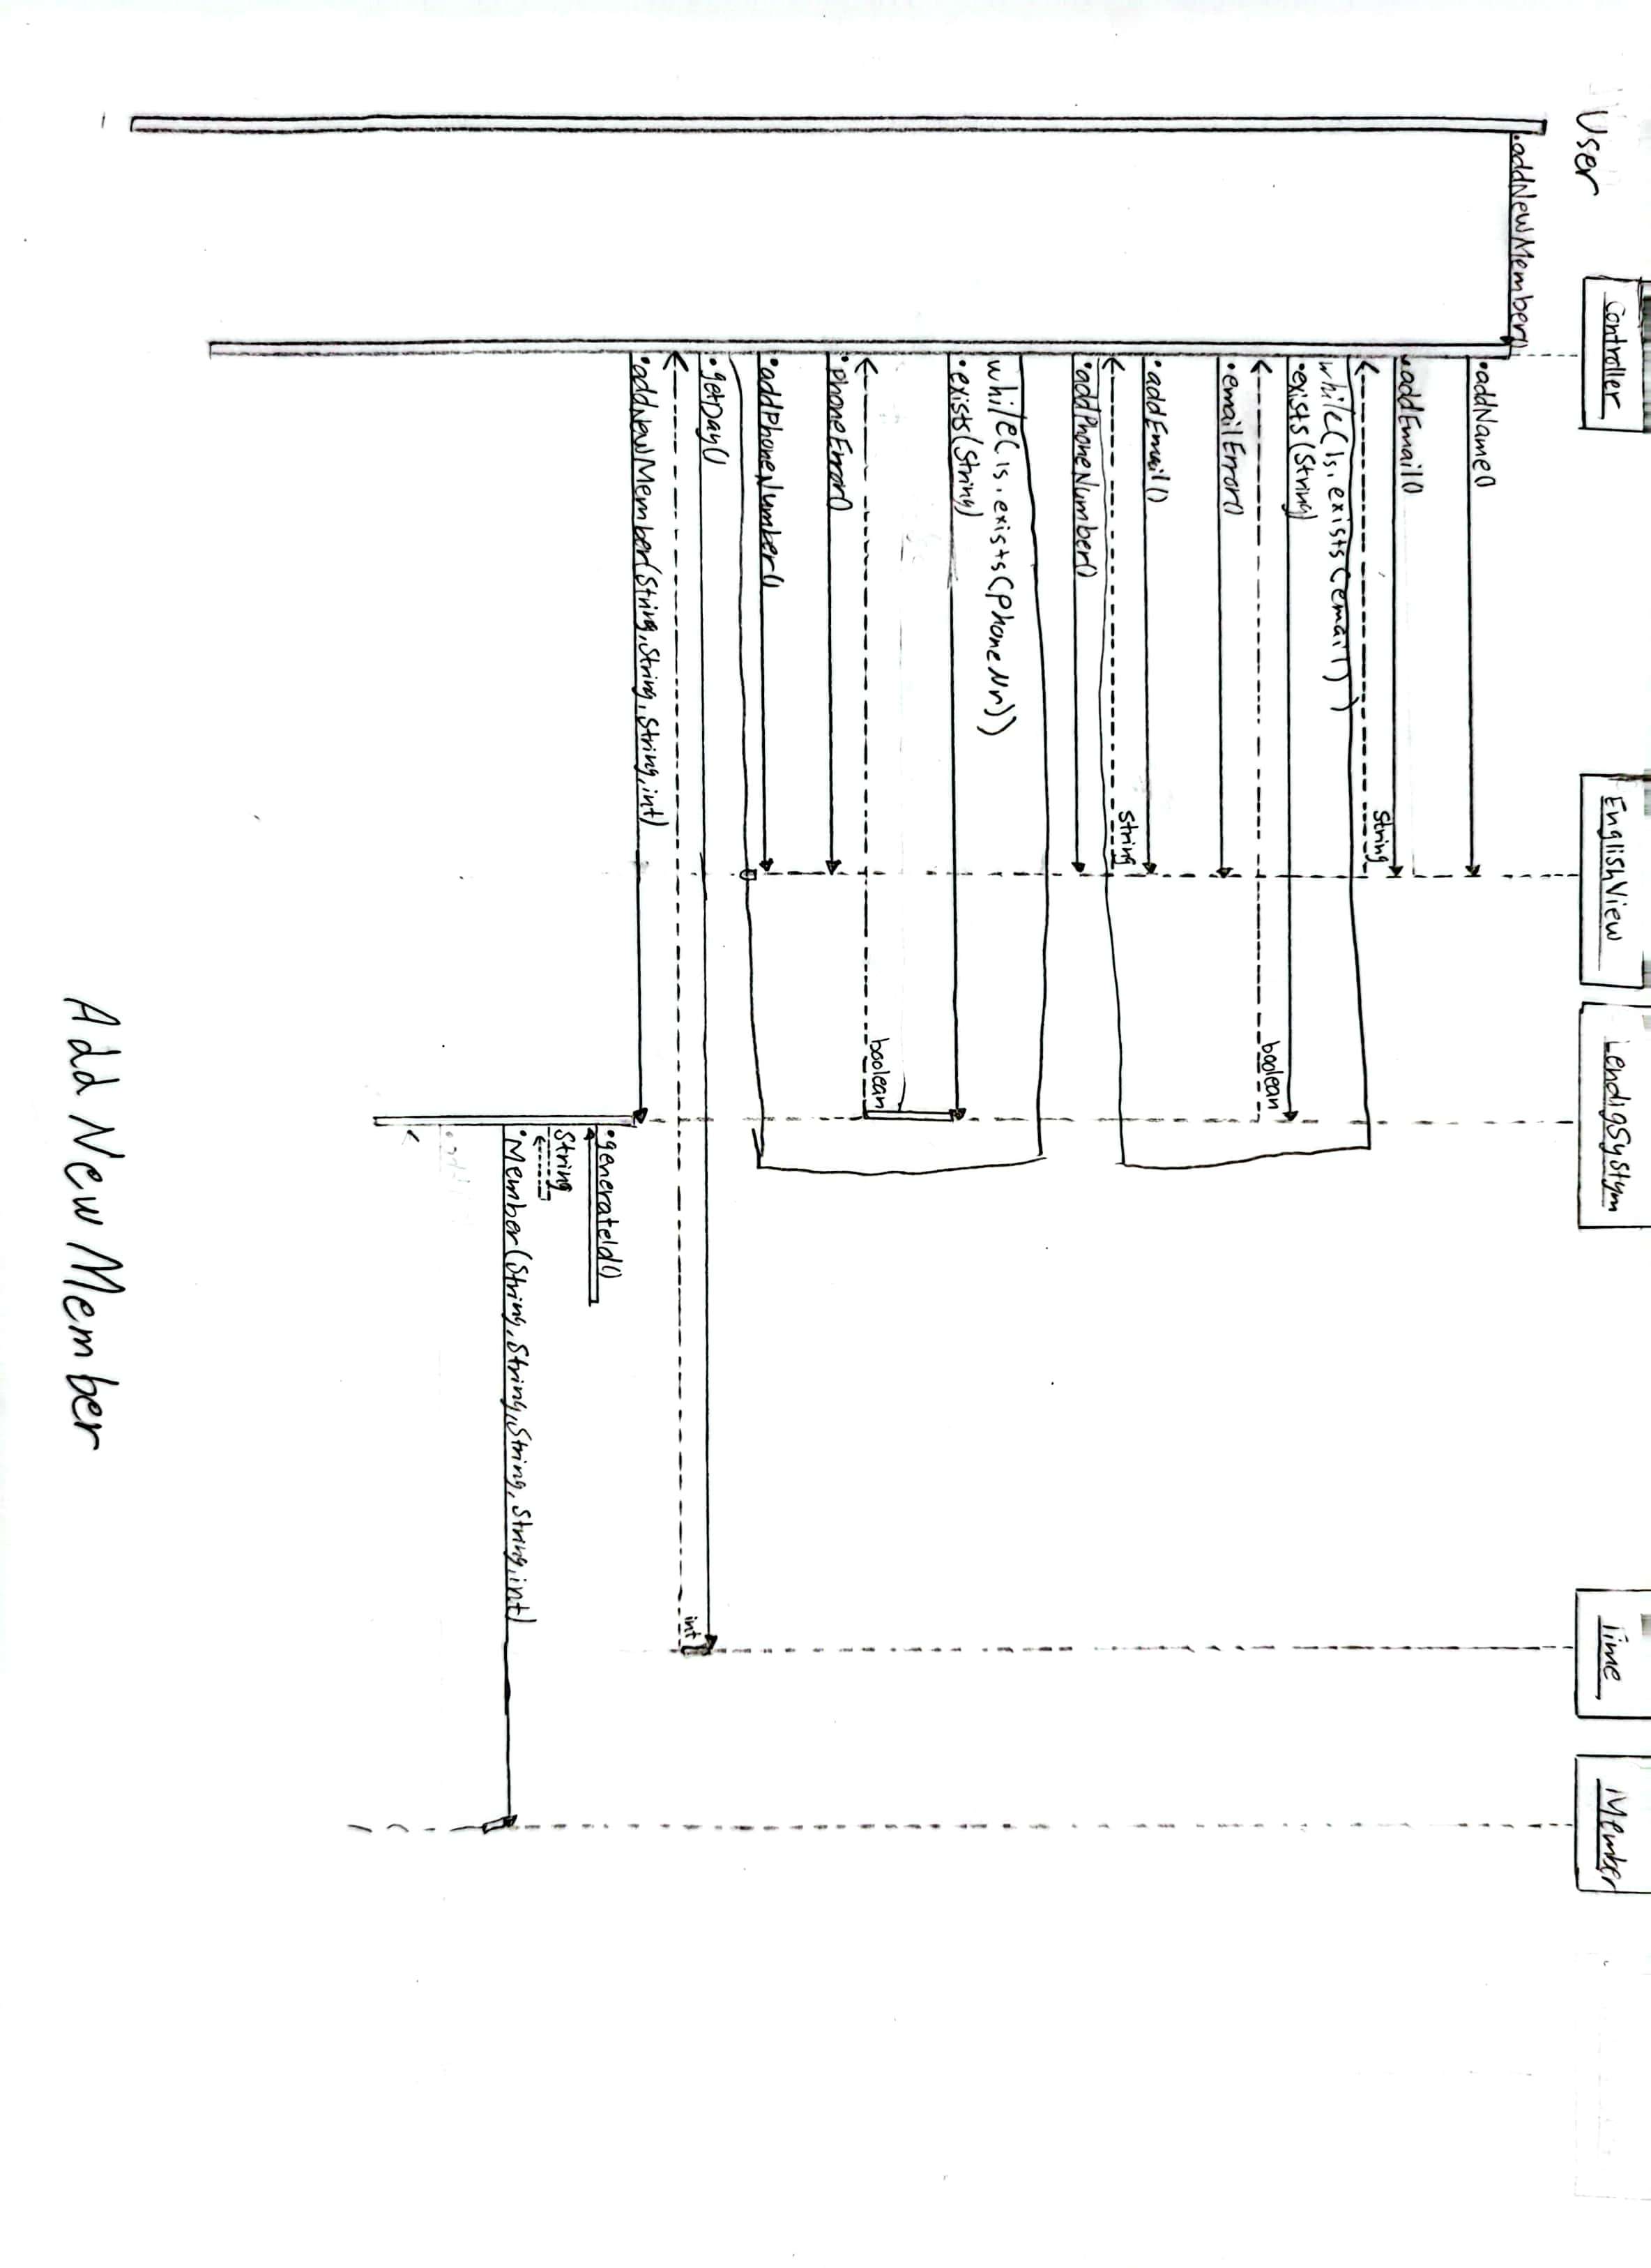 User
Controller
EnglishView
LendigSystym
Time
Member
.addNewMember()
•addName()
•addEmail()
String
while(ls.exists(email))
•exists(String)
boolean
•emailError()
•addEmail()
String
•addPhoneNumber()
while(ls.exists(PhoneNr))
•exists(String)
boolean
•PhoneError()
•addPhoneNumber()
•getDay()
int
•addNewMember(String,String,String,int)
•generateId()
String
•Member(String,String,String,String,int)
Add New Member